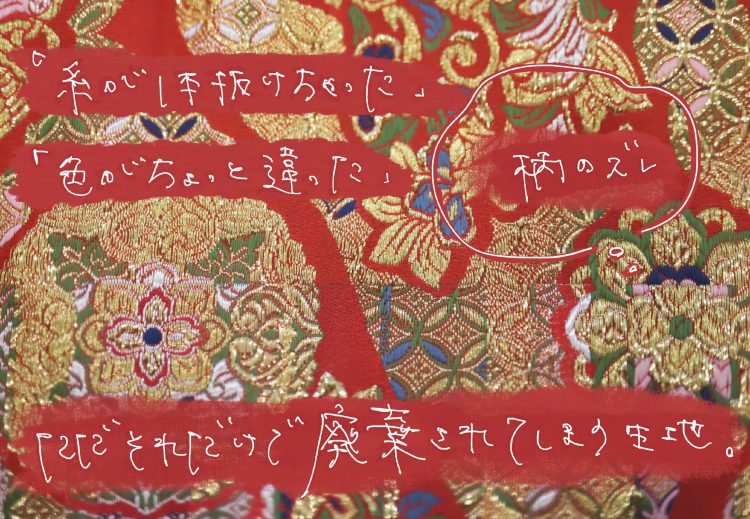 「糸が1本抜けちゃった」
「色がちょっと違った」
柄のズレ
ただそれだけで廃棄されてしまう生地。